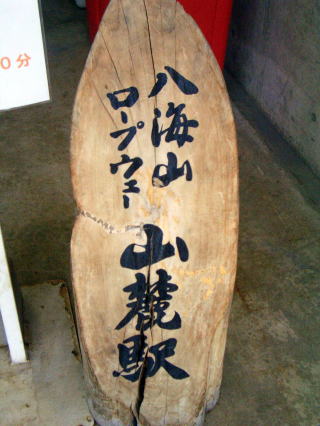 八海山
ロープウェー
山麓駅
0分